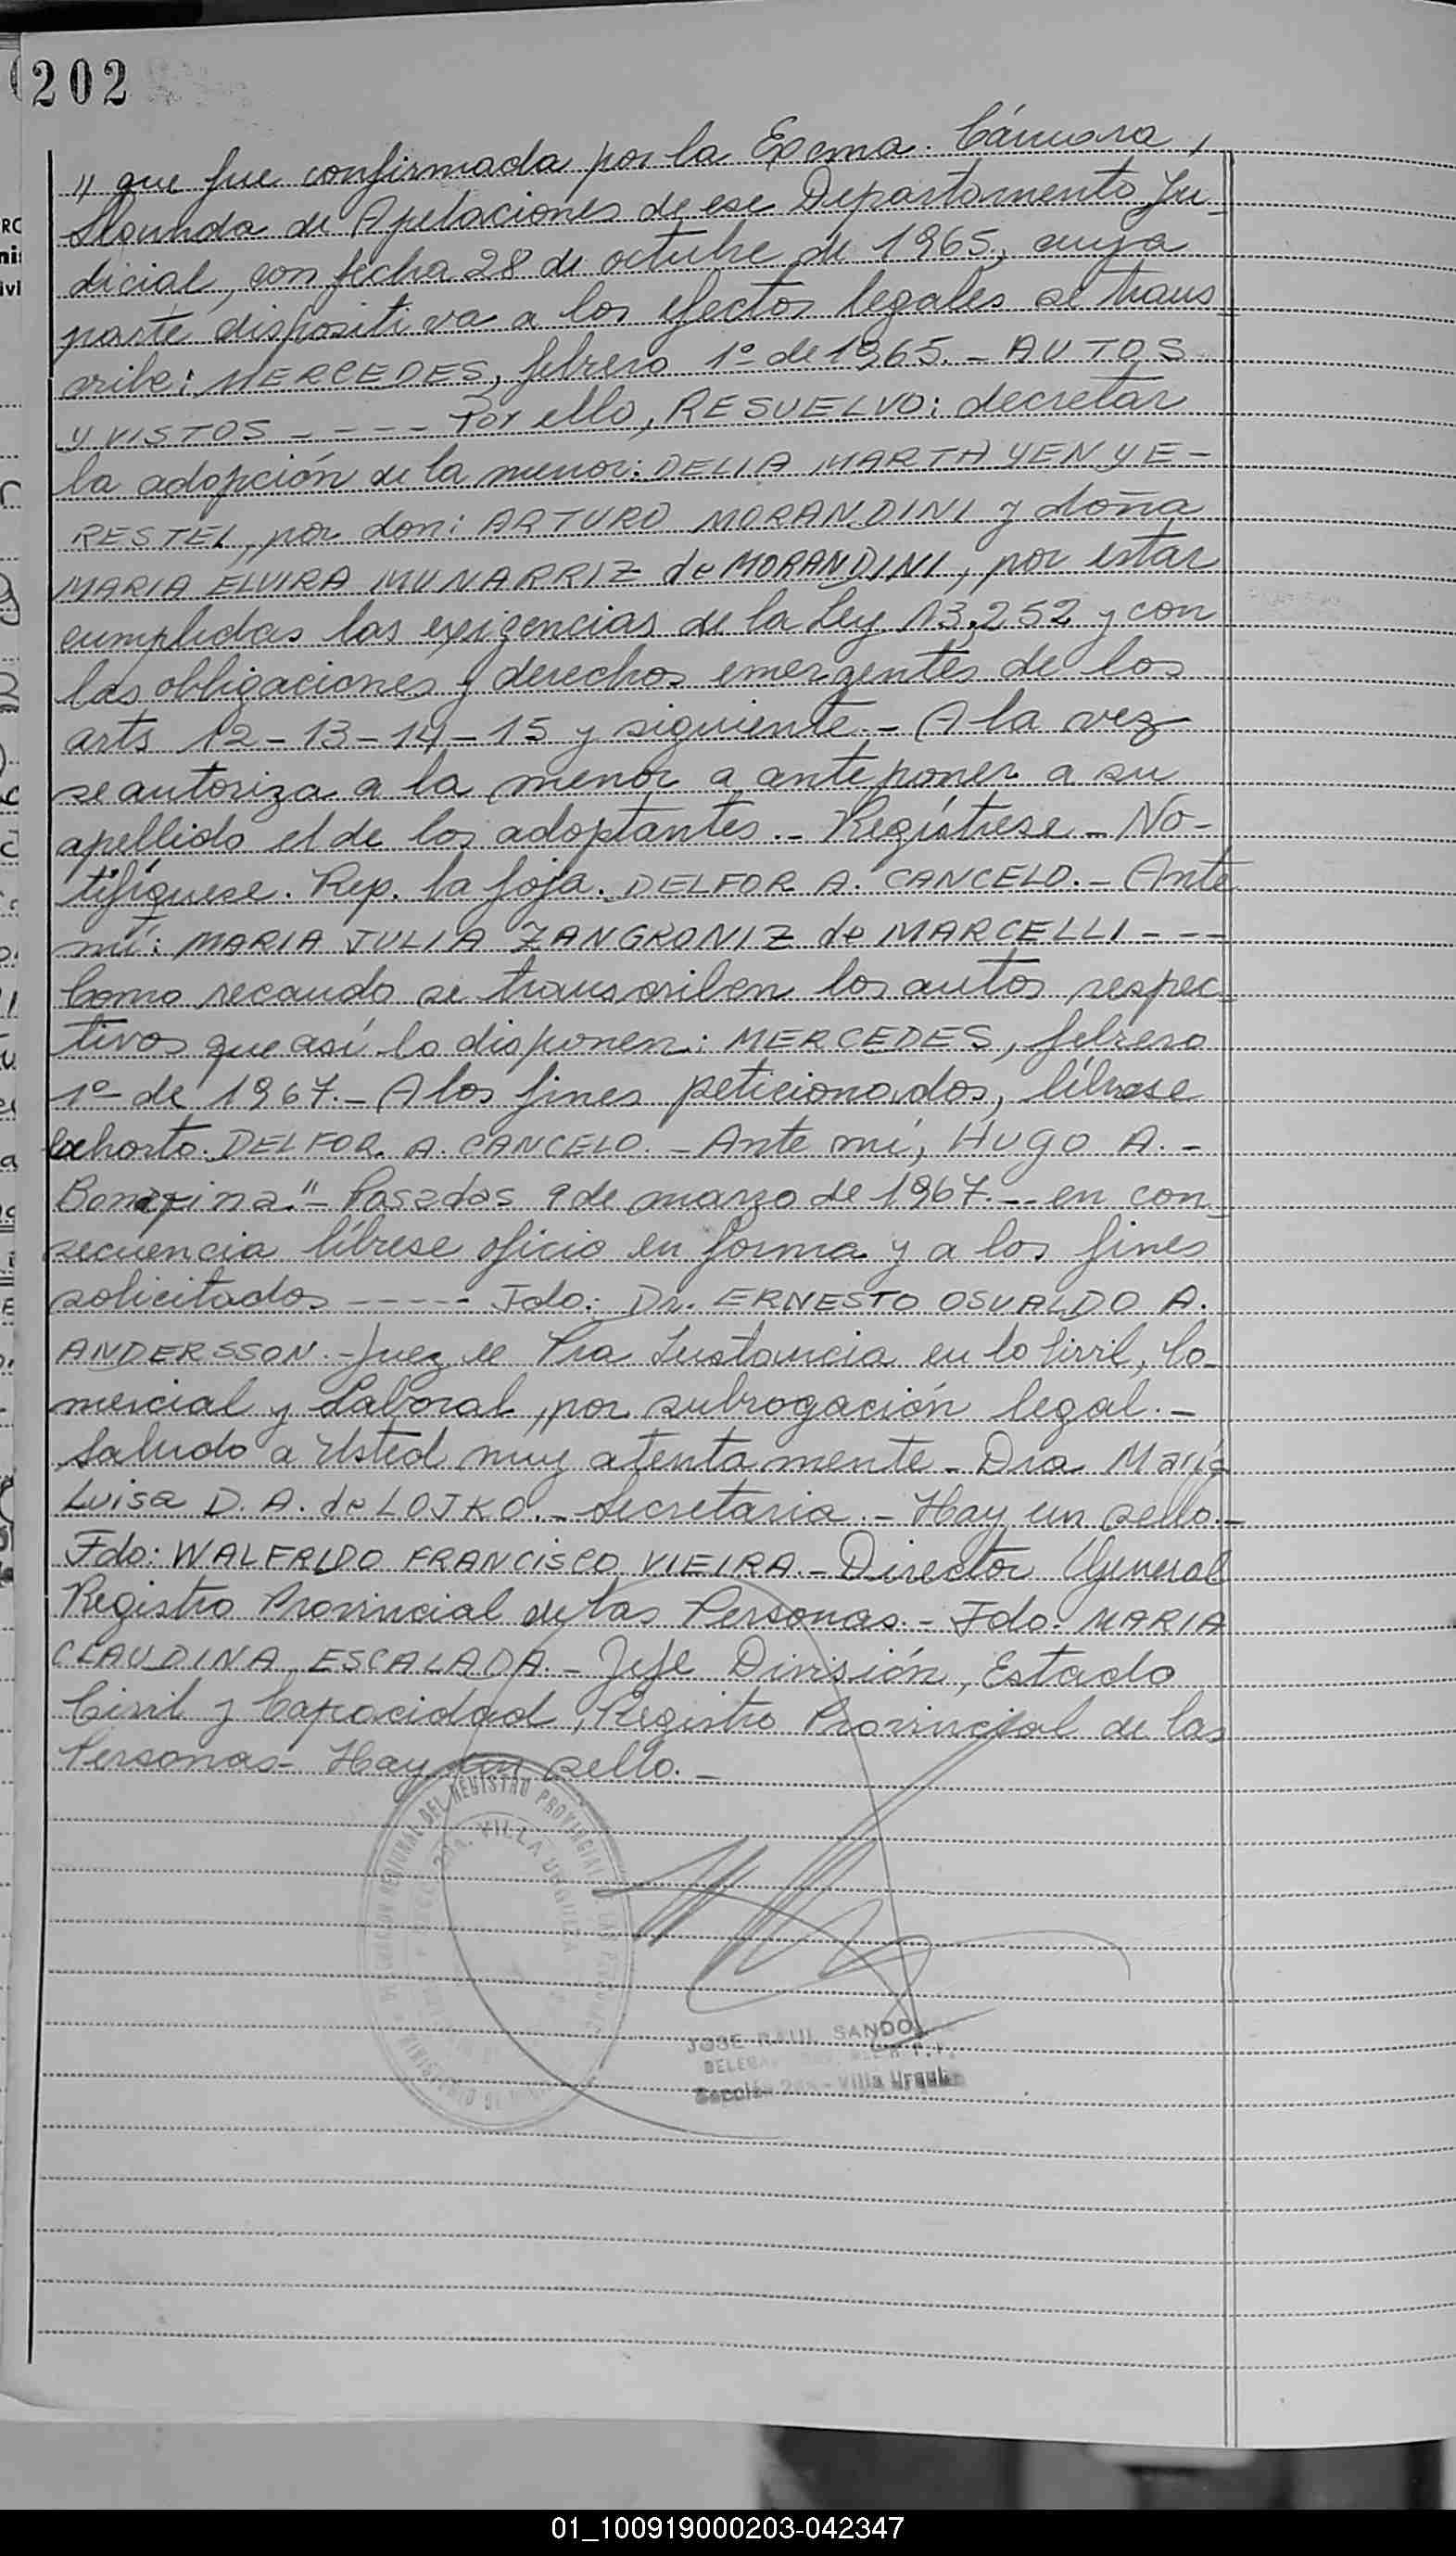 202
" que fue confirmada por la Exma. Cámara,
Segunda de Apelaciones de ese Departamento Ju-
dicial, con fecha 28 de octubre de 1965, cuya
parte dispositiva a los efectos legales se trans
cribe: MERCEDES, febrero 1º de 1965.- AUTOS
Y VISTOS - - - - Por ello, RESUELVO: decretar
la adopción de la menor: DELIA MARTA YENYE-
RESTEL, por don: ARTURO MORANDINI y doña
MARIA ELVIRA MUNARRIZ de MORANDINI, por estar
cumplidas las exigencias de la Ley 13.252 y con
las obligaciones y derechos emergentes de los
arts 12-13-14-15 y siguiente.- A la vez
se autoriza a la menor a anteponer a su
apellido el de los adoptantes.- Regístrese - No-
tifíquese. Rep. la foja. DELFOR A. CANCELO.- Ante
mí: MARIA JULIA ZANGRONIZ de MARCELLI - - -
Como recaudo se transcriben los autos respec-
tivos que así lo disponen: MERCEDES, febrero
1º de 1967.- A los fines peticionados, líbrese
exhorto. DELFOR. A. CANCELO. - Ante mí, HUGO A. -
Posadas 9 de marzo de 1967.-- en con-
secuencia líbrese oficio en forma y a los fines
solicitados ----- Fdo: Dr. ERNESTO OSVALDO A.
ANDERSSON.- Juez de 1ra Instancia en lo Civil, Co-
mercial y Laboral, por subrogación legal.-
Saludo a Usted muy atentamente - Dra María
Luisa D. A. de LOJKO.- Secretaria.- Hay un sello.-
Fdo: WALFRIDO FRANCISCO VIEIRA.- Director General
Registro Provincial de las Personas.- Fdo: MARIA
CLAUDINA ESCALADA.- Jefe División, Estado
Civil y Capacidad, Registro Provincial de las
Personas- Hay un sello.-
DEL REGISTRO PROVINCIAL
VILLA URQUIZA
JOSE RAUL SANDO
Villa Urqui
01_100919000203-042347